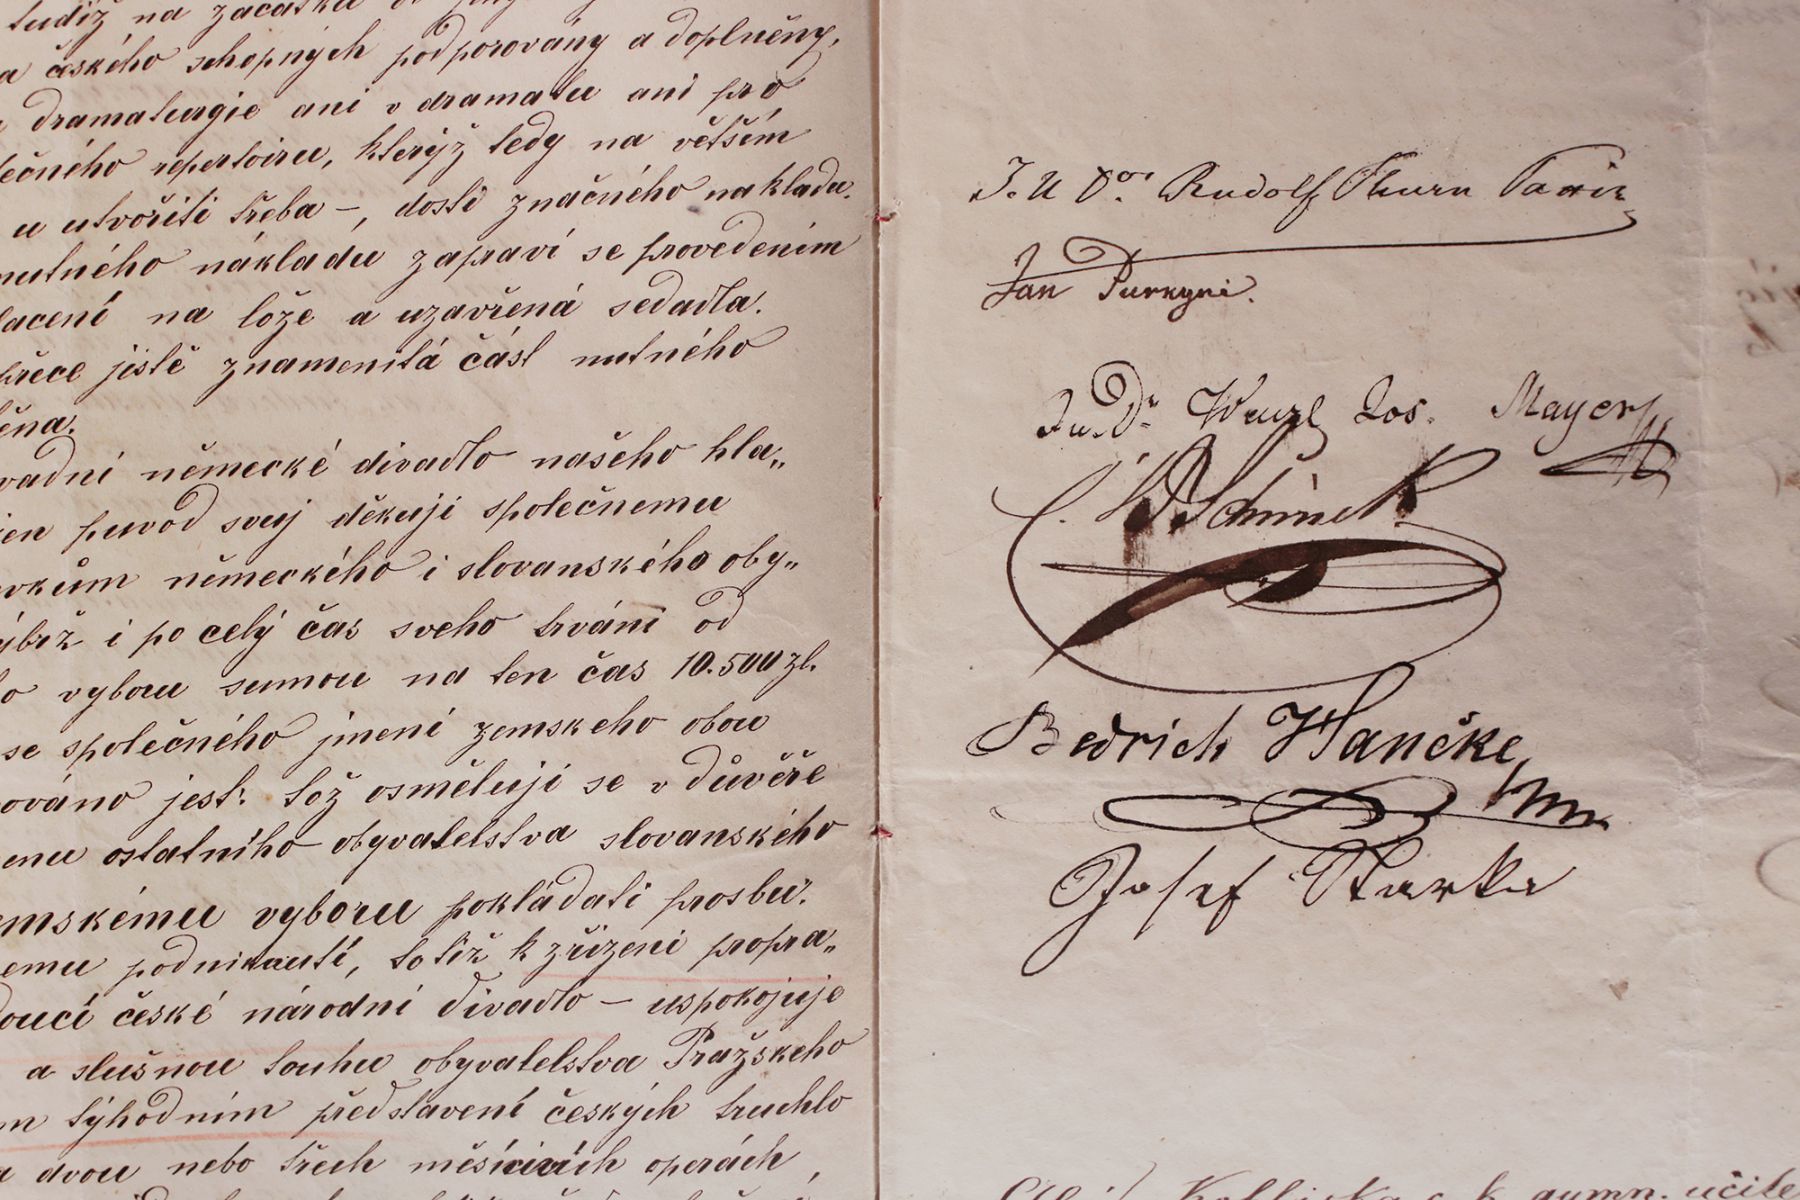 tudíž na začátku
českého schopných podporovány a doplněny,
dramaturgie ani v dramatu ani pro
repertoiru, kterýž tedy na větším
u utvořiti třeba –, dosti značného nakladu.
nutného nákladu zapraví se provedením
na lóže a uzavřená sedadla.
jistě znamenitá část nutného
německé divadlo našého hla„
puvod svuj děkuji společnemu
německého i slovanského oby„
i po celý čas sveho trváni od
vyboru sumou na ten čas 10.500 zl.
se společného jmení zemskeho obou
jest: tož osměluji se v důvěře
ostatního obyvatelstva slovanského
vyboru pokládati prosbu:
podniknutí, totiž k zřízeni propra„
české národní divadlo – uspokojuje
a slušnou touhu obyvatelstva Pražskeho
týhodním představení českých truchlo
dvou nebo třech měsíčních operách,
J. U Dor. Rudolf Thurn Taxis
Jan Purkyni.
Ju. Dr. Wenzl Jos. Mayer
Bedrich Hančke
Josef
gymn. učite